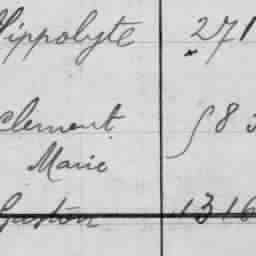 Hippolyte 271
Clement 83
Marie
Gaston 1316